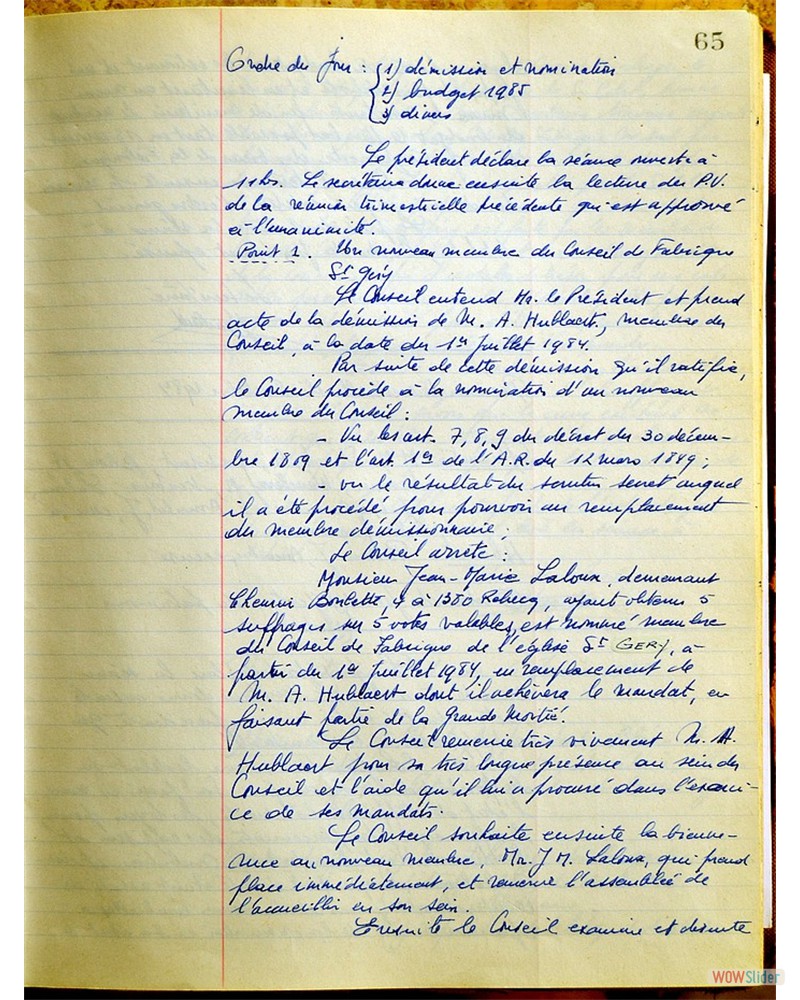 65
Ordre du Jour : 1) démission et nomination
2) budget 1985
3) divers
Le président déclare la séance ouverte à
11 hs. Le secrétaire donne ensuite la lecture du P.V.
de la réunion trimestrielle précédente qui est approuvé
à l'unanimité.
Point 1. Un nouveau membre du Conseil de Fabrique
St Géry
Le Conseil entend Mr. le Président et prend
acte de la démission de M. A. Hublaert, membre du
Conseil, à la date du 1er juillet 1984.
Par suite de cette démission qu'il ratifie,
le Conseil procède à la nomination d'un nouveau
membre du Conseil :
- Vu les art. 7, 8, 9 du décret du 30 décem-
bre 1809 et l'art. 1er de l'A.R. du 12 mars 1849 ;
vu le résultat du scrutin secret auquel
il a été procédé pour pourvoir au remplacement
du membre démissionnaire ;
Le Conseil arrête :
Monsieur Jean-Marie Laloux, demeurant
Chemin Boulette, 4 à 1380 Rebecq, ayant obtenu 5
suffrages sur 5 votes valables, est nommé membre
du Conseil de Fabrique de l'église St GERY, à
partir du 1er juillet 1984, en remplacement de
M. A. Hublaert dont il achèvera le mandat, en
faisant partie de la Grande Moitié.
Le Conseil remercie très vivement M. A.
Hublaert pour sa très longue présence au sein du
Conseil et l'aide qu'il lui a procuré dans l'exerci-
ce de ses mandats.
Le Conseil souhaite ensuite la bienve-
nue au nouveau membre, Mr. J M. Laloux, qui prend
place immédiatement, et remercie l'assemblée de
l'accueillir en son sein.
Ensuite le Conseil examine et discute
WOWSlider